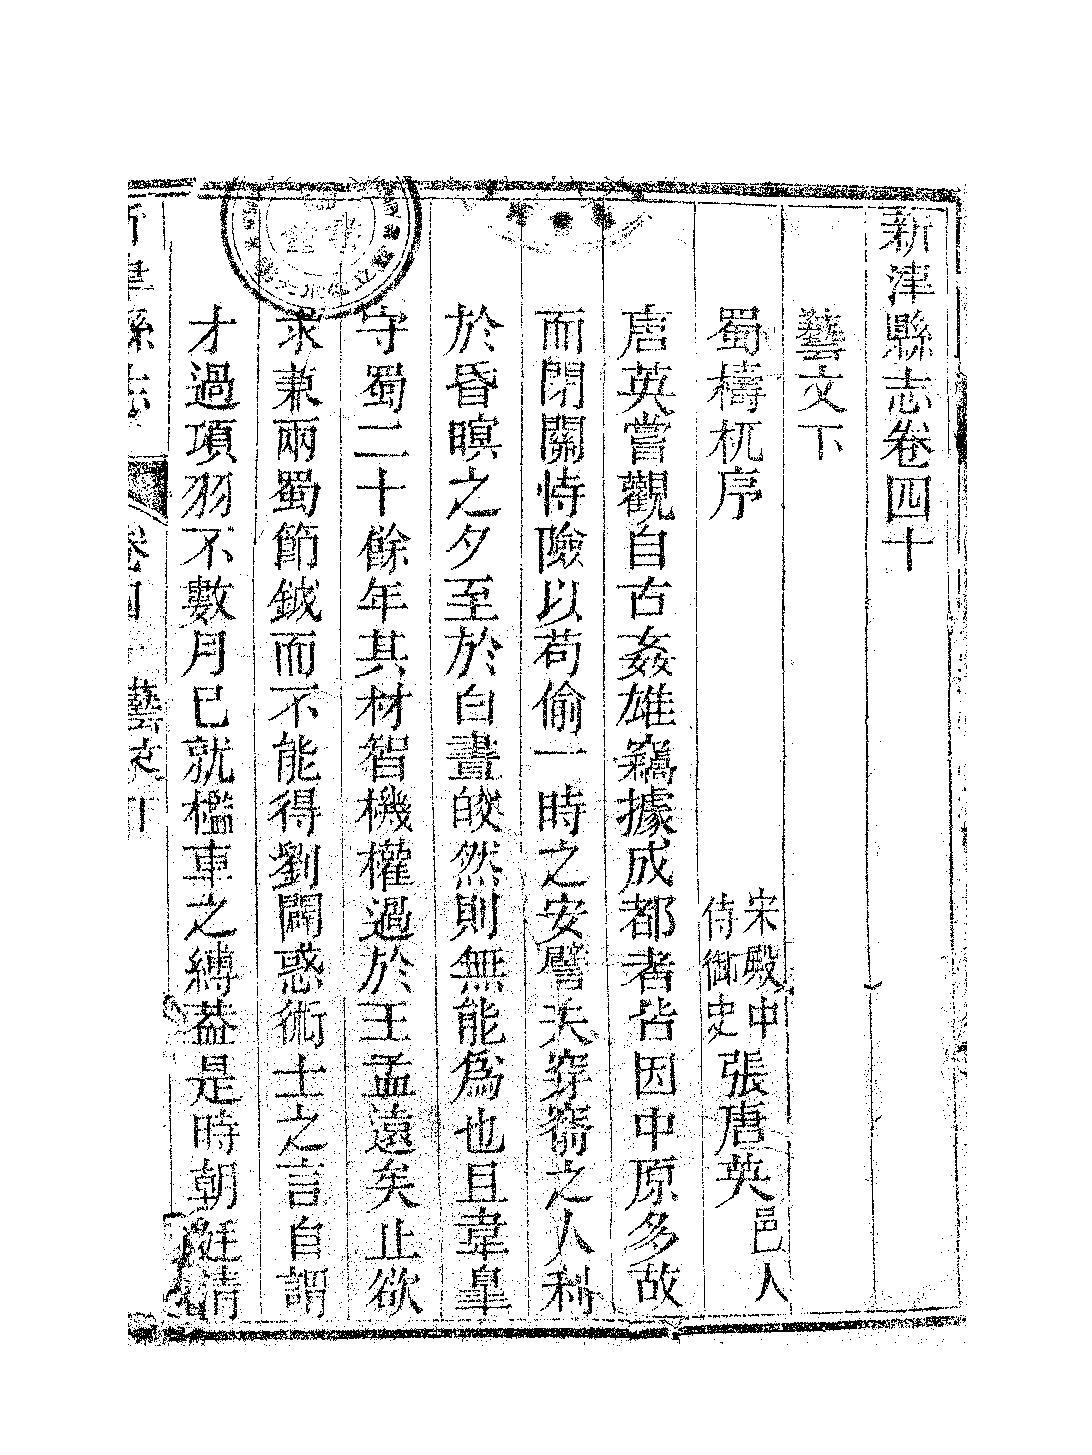 新津縣志卷四十
藝文下
蜀檮杌序
宋殿中
侍御史
張唐英
邑人
唐英嘗觀自古姦雄竊據成都者皆因中原多故
而閉關恃險以苟偷一時之安譬夫穿窬之人利
於昏暝之夕至於白晝皎然則無能爲也且韋臯
守蜀二十餘年其材智機權過於王孟遠矣止欲
求兼兩蜀節鉞而不能得劉闢惑術士之言自謂
才過項羽不數月已就檻車之縛葢是時朝廷清
新津縣志
卷四
藝文下